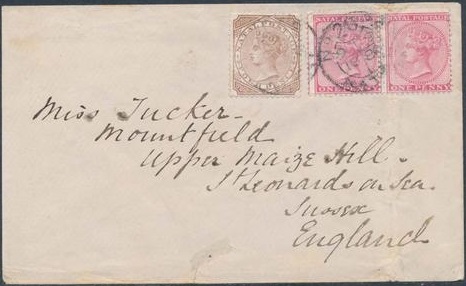 NATAL POSTAGE
NATAL POSTAGE
ONE PENNY
ONE PENNY
Miss Tucker.
Mountfield
Upper Maize Hill.
St Leonards on Sea.
Sussex
England